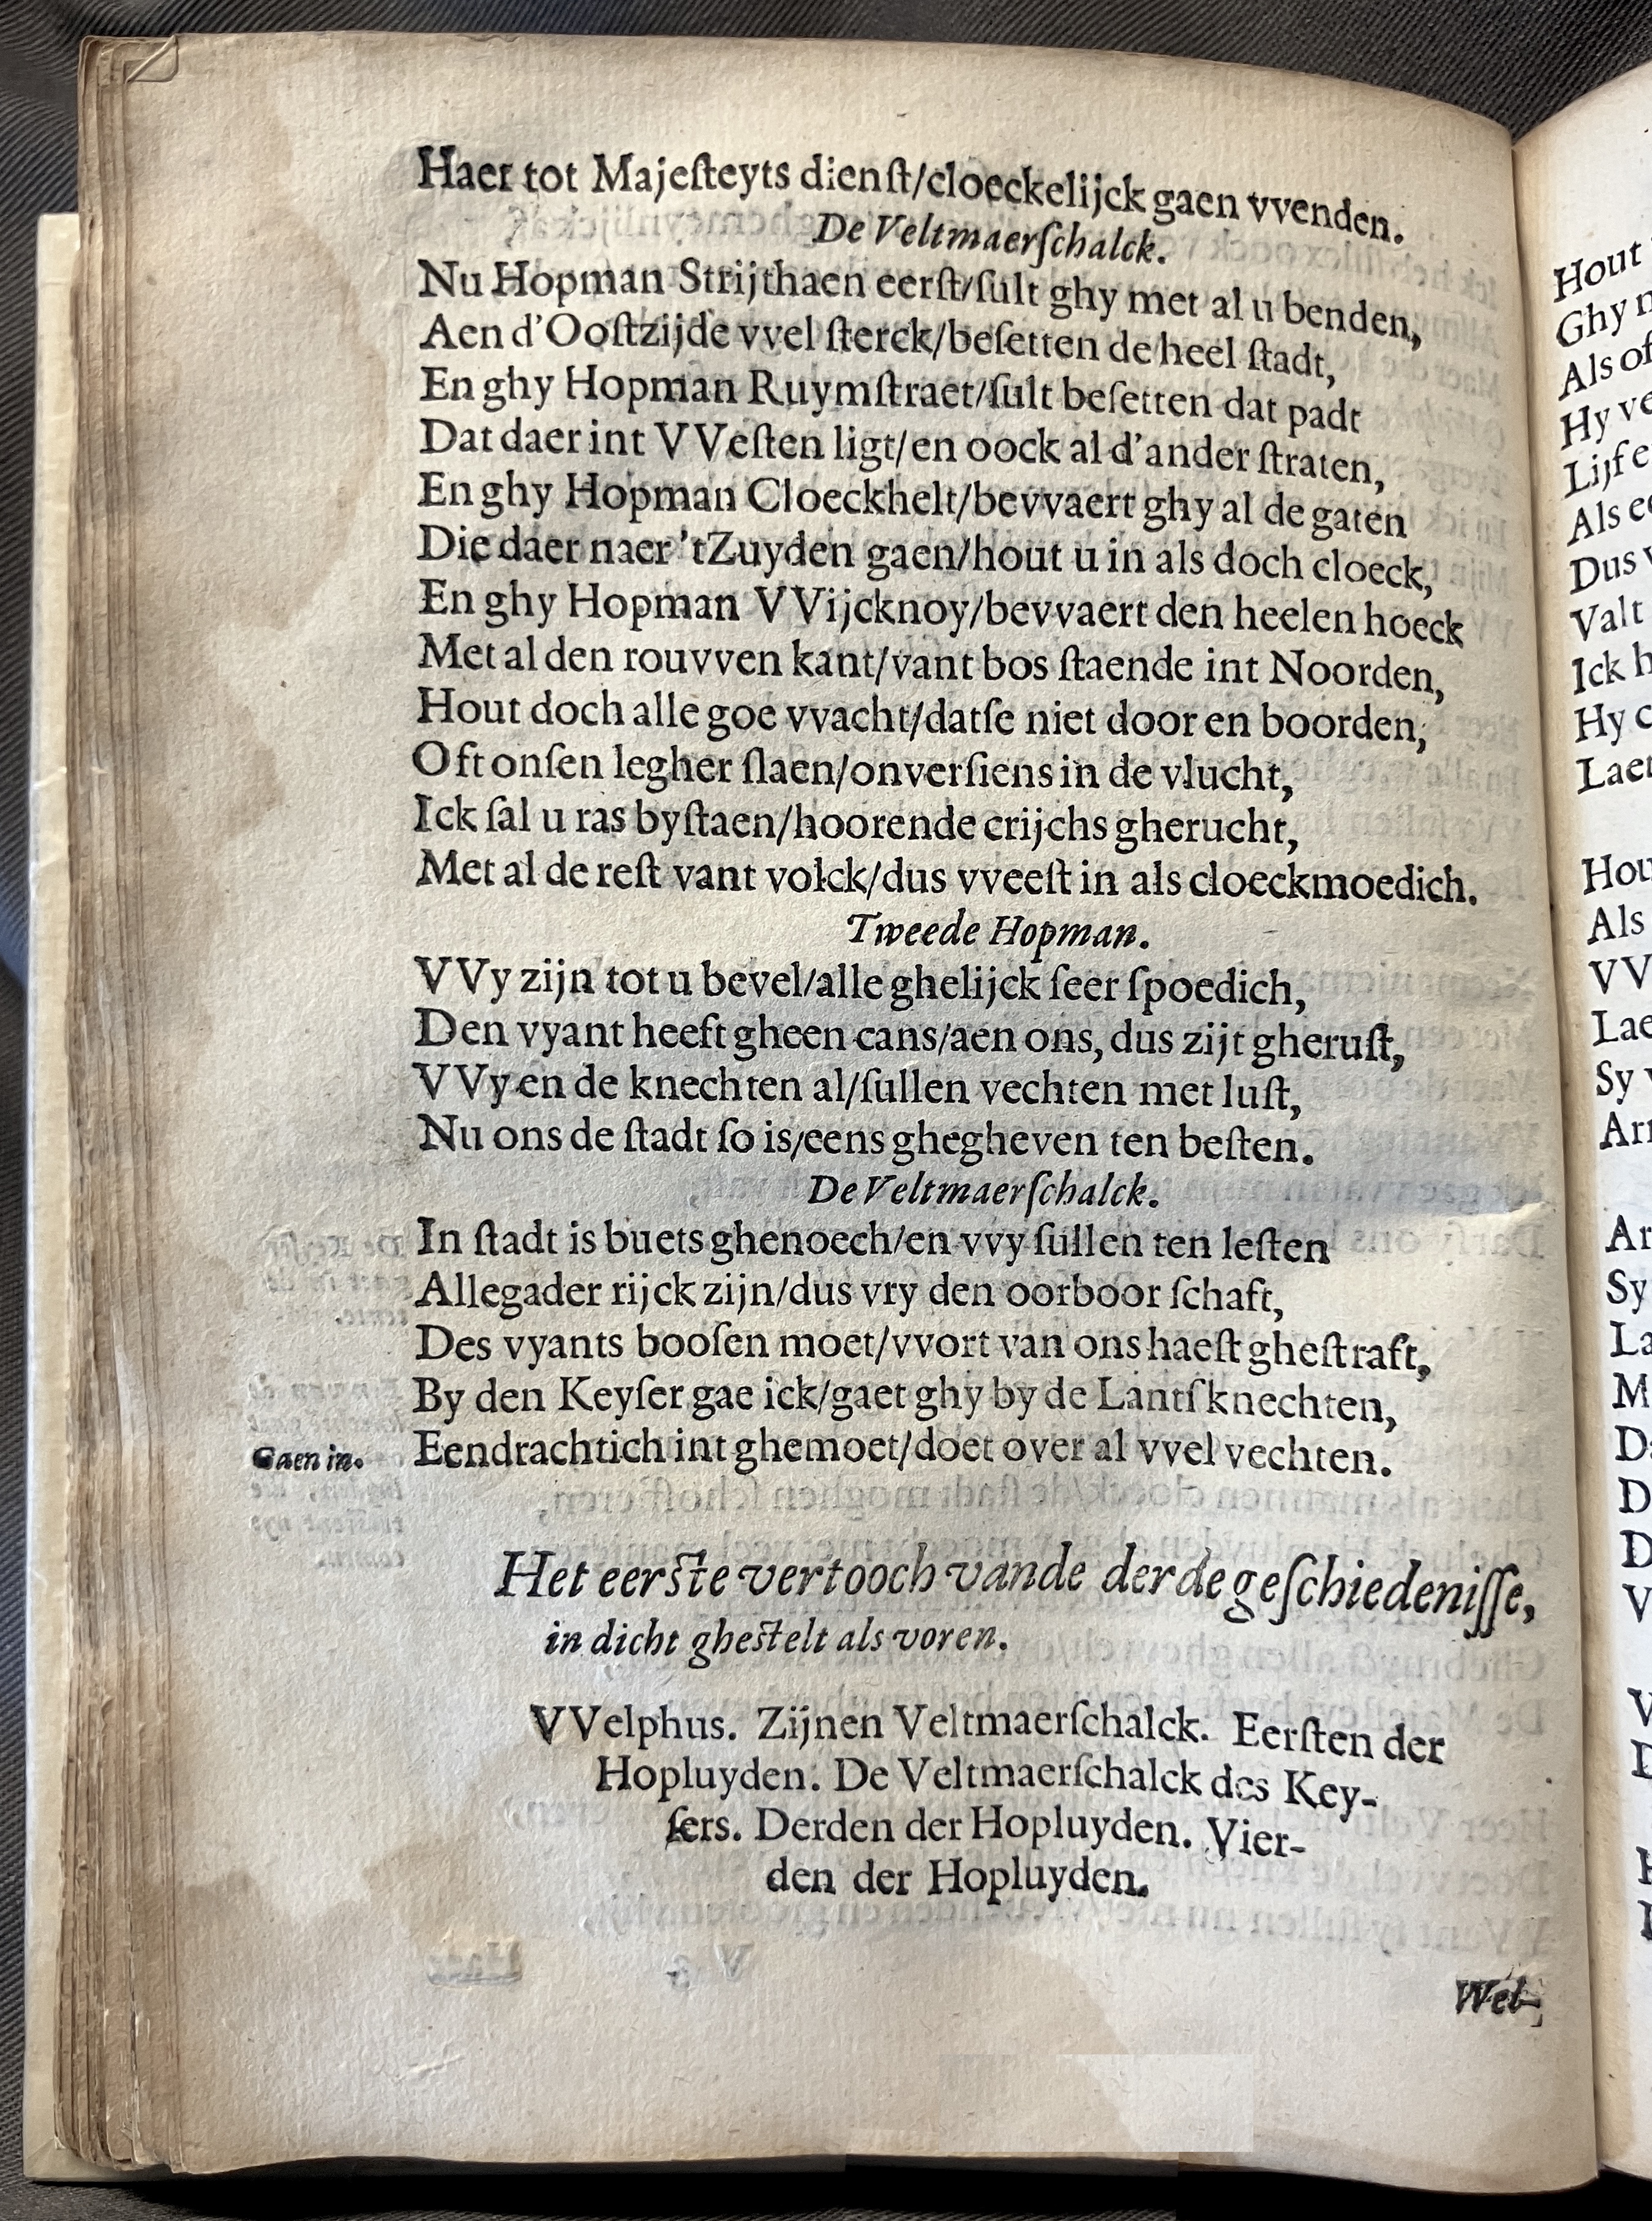 Haer tot Majeſteyts dienſt/cloeckelijck gaen vvenden.
De Veltmaerſchalck.
Nu Hopman Strijthaen eerſt/ſult ghy met al u benden,
Aen d'Ooſtzijde vvel ſterck/beſetten de heel ſtadt,
En ghy Hopman Ruymſtraet/ſult beſetten dat padt
Dat daer int VVeſten ligt/en oock al d'ander ſtraten,
En ghy Hopman Cloeckhelt/bevvaert ghy al de gaten
Die daer naer 'tZuyden gaen/hout u in als doch cloeck,
En ghy Hopman VVijcknoy/bevvaert den heelen hoeck
Met al den rouvven kant/vant bos ſtaende int Noorden,
Hout doch alle goe vvacht/datſe niet door en boorden,
Oft onſen legher ſlaen/onverſiens in de vlucht,
Ick ſal u ras byſtaen/hoorende crijchs gherucht,
Met al de reſt vant volck/dus vveeſt in als cloeckmoedich.
Tweede Hopman.
VVy zijn tot u bevel/alle ghelijck ſeer ſpoedich,
Den vyant heeft gheen cans/aen ons, dus zijt gheruſt,
VVy en de knechten al/ſullen vechten met luſt,
Nu ons de ſtadt ſo is/eens ghegheven ten beſten.
De Veltmaerſchalck.
In ſtadt is buets ghenoech/en vvy ſullen ten leſten
Allegader rijck zijn/dus vry den oorboor ſchaft,
Des vyants booſen moet/vvort van ons haeſt gheſtraft,
By den Keyſer gae ick/gaet ghy by de Lantſknechten,
Gaen in. Eendrachtich int ghemoet/doet over al vvel vechten.
Het eerſte vertooch vande derde geſchiedeniſſe,
in dicht gheſtelt als voren.
VVelphus. Zijnen Veltmaerſchalck. Eerſten der
Hopluyden. De Veltmaerſchalck des Key-
ſers. Derden der Hopluyden. Vier-
den der Hopluyden.
Wel-
Hout
Ghy
Als
Hy
Als
Dus
Valt
Ick
Hy
Als
Sy
Sy